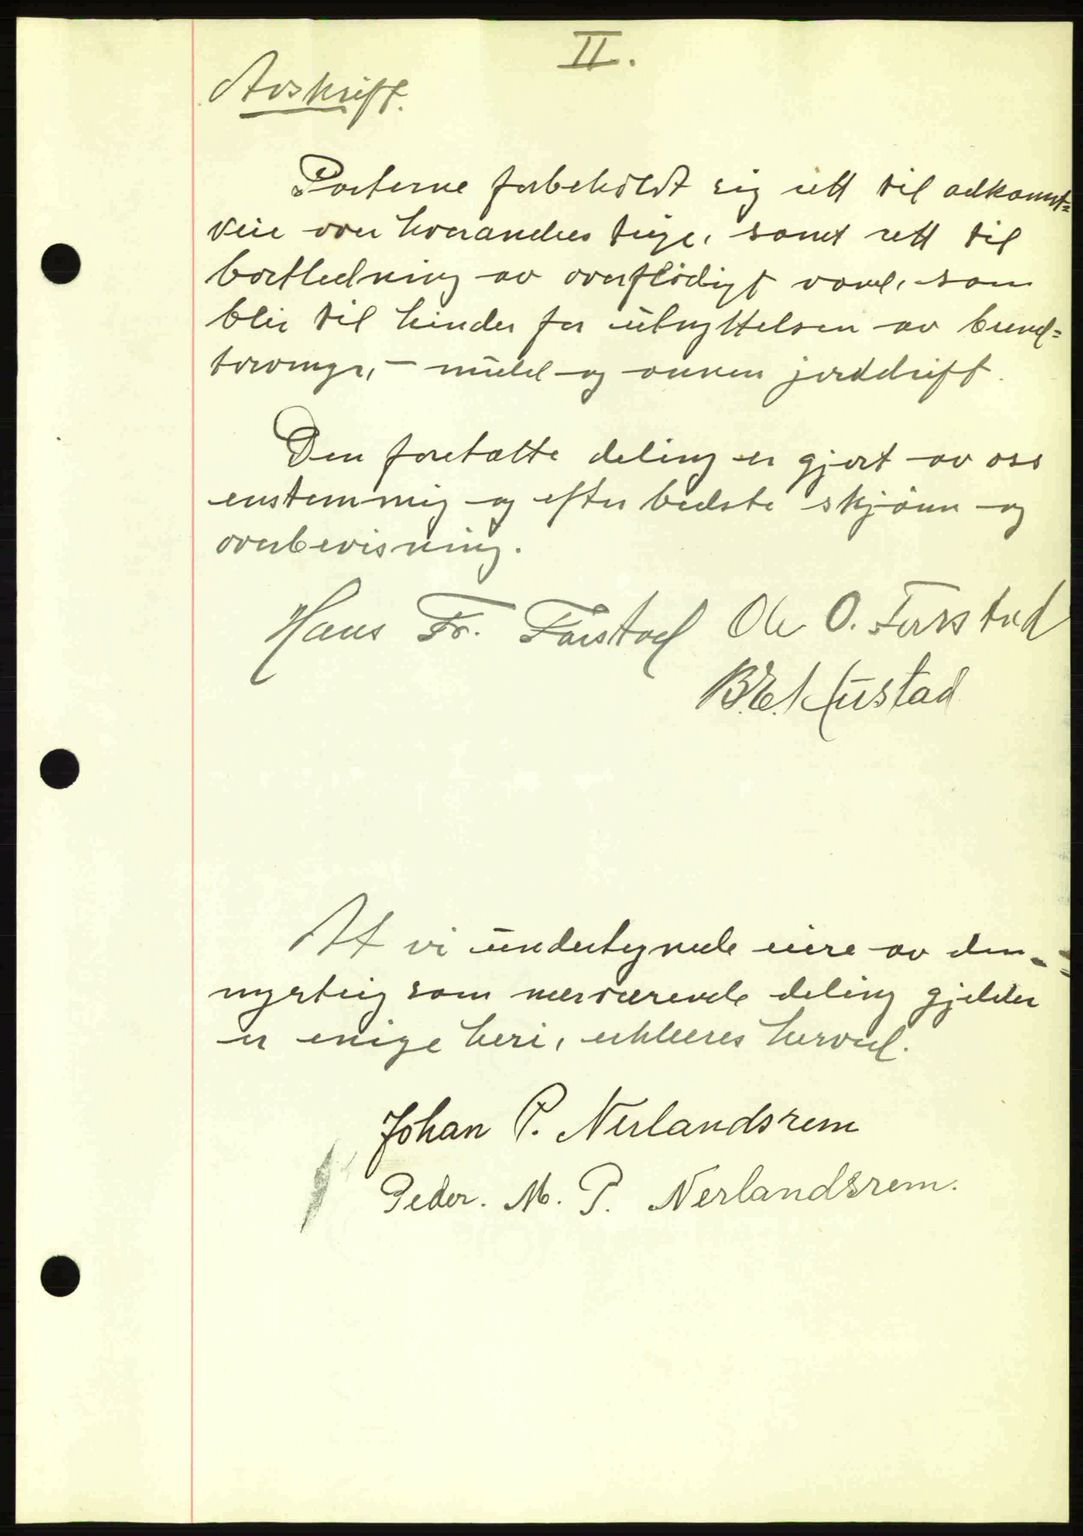 II.
Avskrift.
Parterne forbeholdt sig rett til adkomst=
veie over hverandres teige, samt rett til
bortledning av overflödigt vand, som
blir til hinder for utnyttelsen av brend=
torvmyr, - muld og annen jorddrift.
Den foretatte deling er gjort av oss
enstemmig og efter bedste skjönn og
overbevisning.
Hans Fr. Farstad Ole O. Farstad
B.E. Hustad
At vi undertegnede eiere av den
myrteig som nærværende deling gjelder
er enige heri, erklæres herved.
Johan P. Nerlandsrem
Peder. M. P. Nerlandsrem.